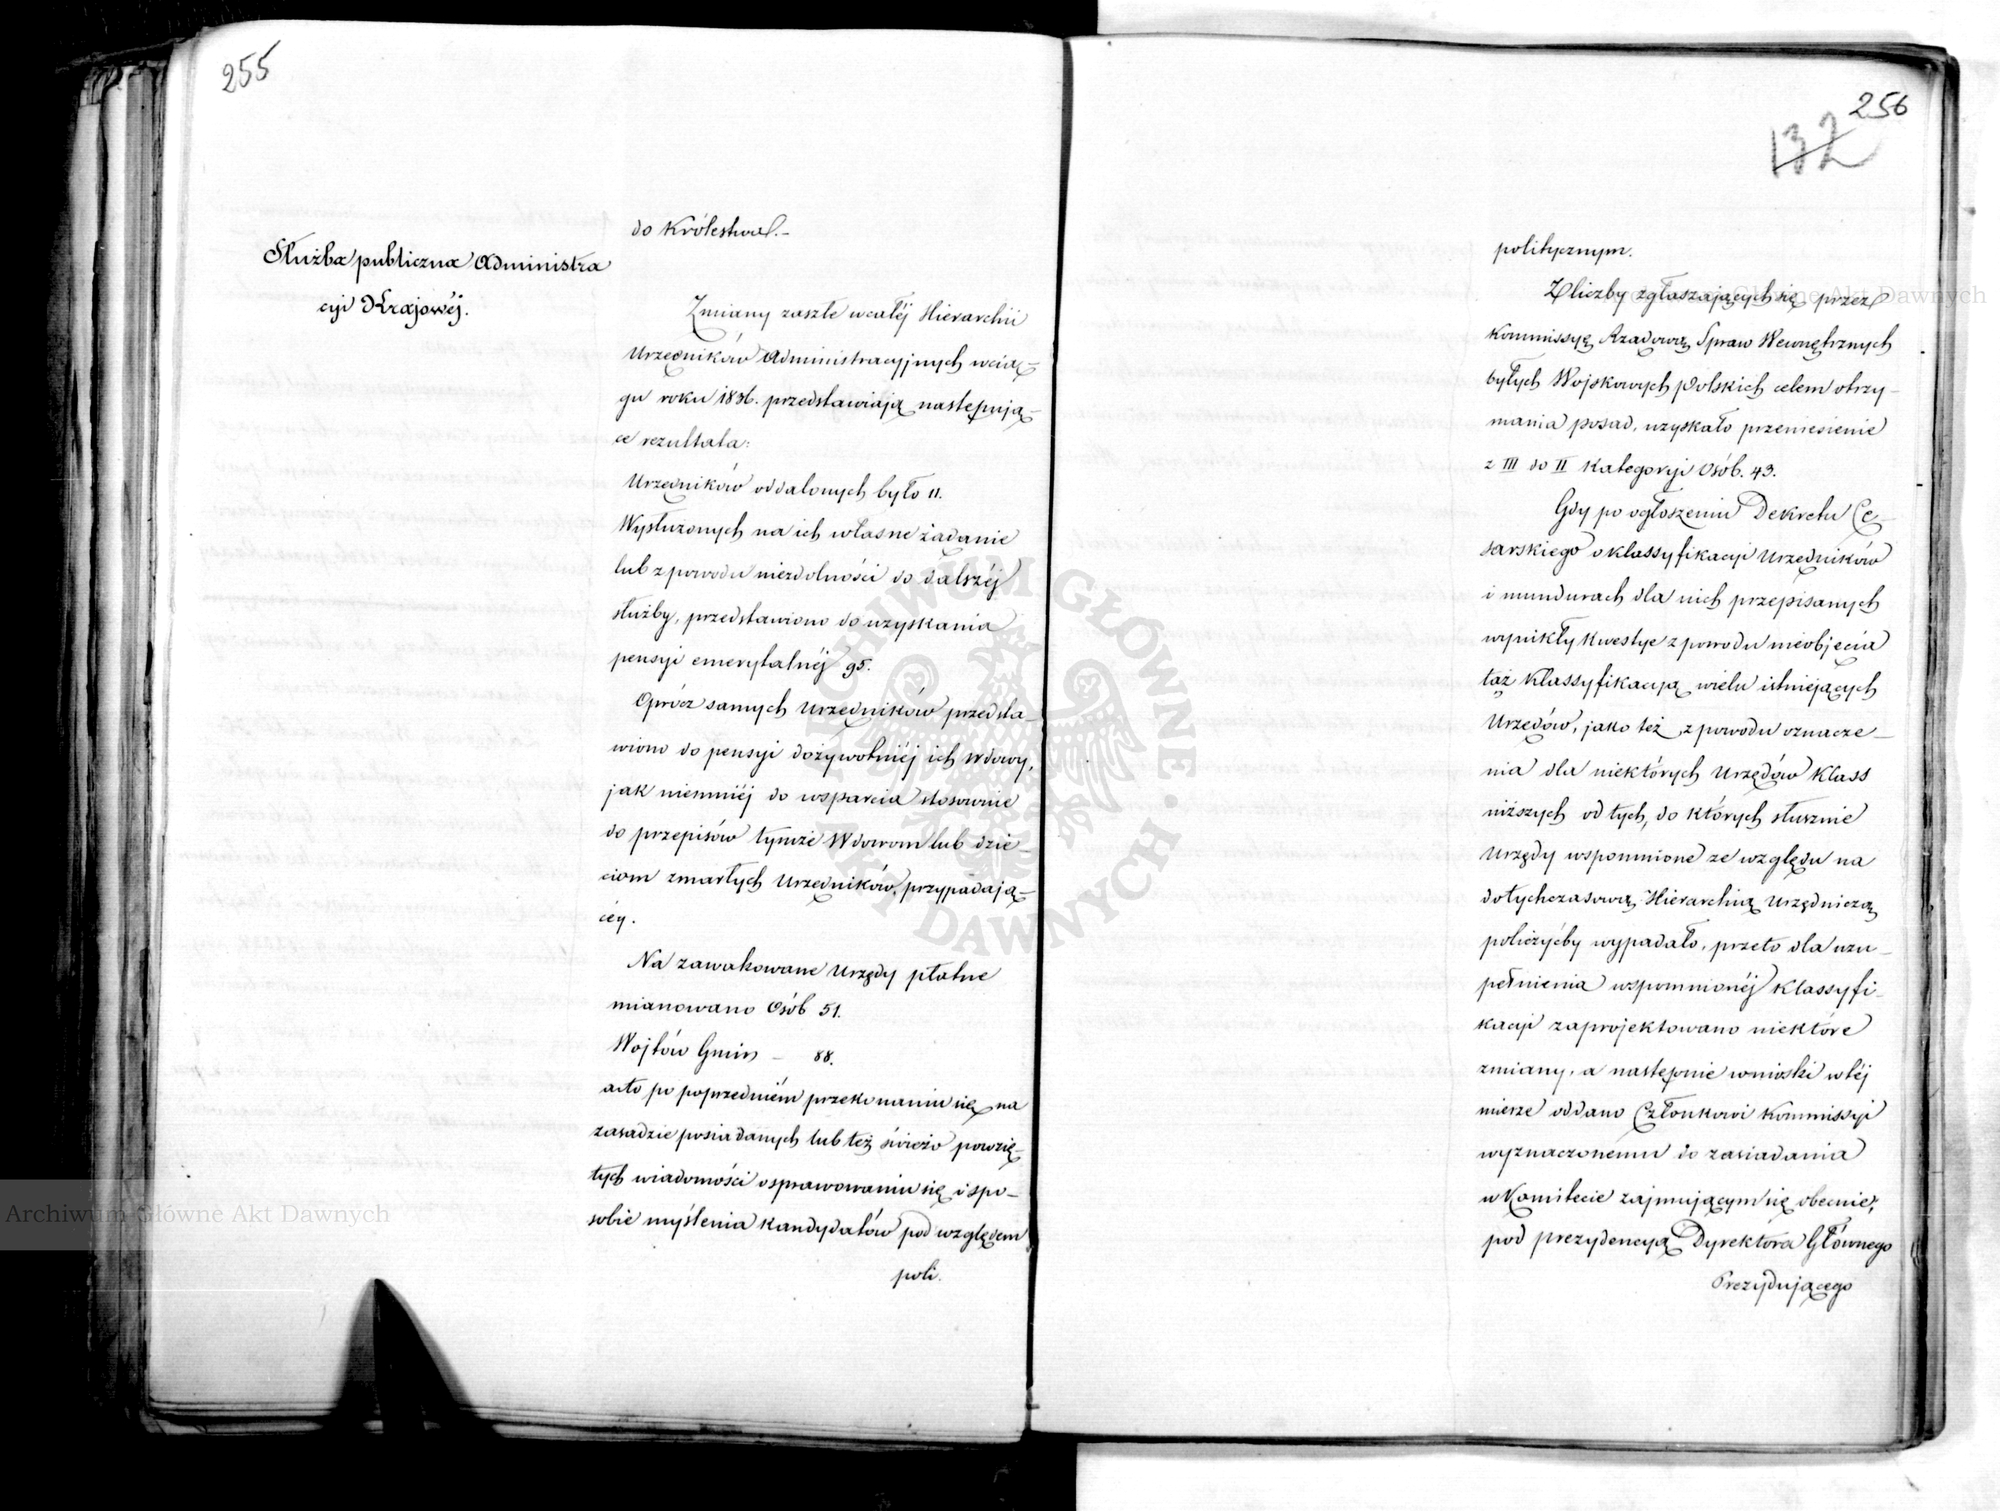 255
Służba publiczna Administra
cyi Krajowéj.
do Królestwa.-
Zmiany zaszłe w całéj Hierarchii
Urzędników Administracyjnych w cią-
gu roku 1836. przedstawiają następują-
ce rezultata:
Urzędników oddalonych było 11.
Wysłużonych na ich własne żądanie
lub z powodu niezdolności do dalszéj
służby, przedstawiono do uzyskania
pensyi emerytalnéj 95.
Oprócz samych Urzędników przedsta-
wiono do pensyi dożywotniéj ich Wdowy,
jak niemniéj do wsparcia stosownie
do przepisów tymże Wdowom lub dzie-
ciom zmarłych Urzędników, przypadają-
céy.
Na zawakowane Urzędy płatne
mianowano Osób 51.
Wojtów Gmin - 88.
a to po poprzedniém przekonaniu się na
zasadzie posiadanych lub też świeżo powzię-
tych wiadomości o sprawowaniu się i spo-
sobie myślenia kandydatów pod względem
poli.
256
132
politycznym.
Z liczby zgłaszających się przez
Kommissyę Rządową Spraw Wewnętrznych
byłych Wojskowych Polskich celem otrzy-
mania posad, uzyskało przeniesienie
z III do II Kategoryi Osób. 43.
Gdy po ogłoszeniu Dekretu Ce-
sarskiego o klassyfikacyi Urzędników
i mundurach dla nich przepisanych
wynikły kwestye z powodu nieobjęcia
tąż Klassyfikacyą wielu istniejących
Urzędów, jako też z powodu oznacze-
nia dla niektórych Urzędów Klass
niższych od tych, do których słusznie
Urzędy wspomnione ze względu na
dotychczasową Hierarchią Urzędniczą
policzyćby wypadało, przeto dla uzu-
pełnienia wspomnionéj Klassyfi-
kacyi zaprojektowano niektóre
zmiany, a następnie wnioski w téj
mierze oddano Członkowi Kommissyi
wyznaczonému do zasiadania
w Komitecie zajmującym się obecnie,
pod prezydencyą Dyrektora Głównego
Prezydującego
Archiwum Główne Akt Dawnych
Archiwum Główne Akt Dawnych
ARCHIWUM GŁÓWNE AKT DAWNYCH